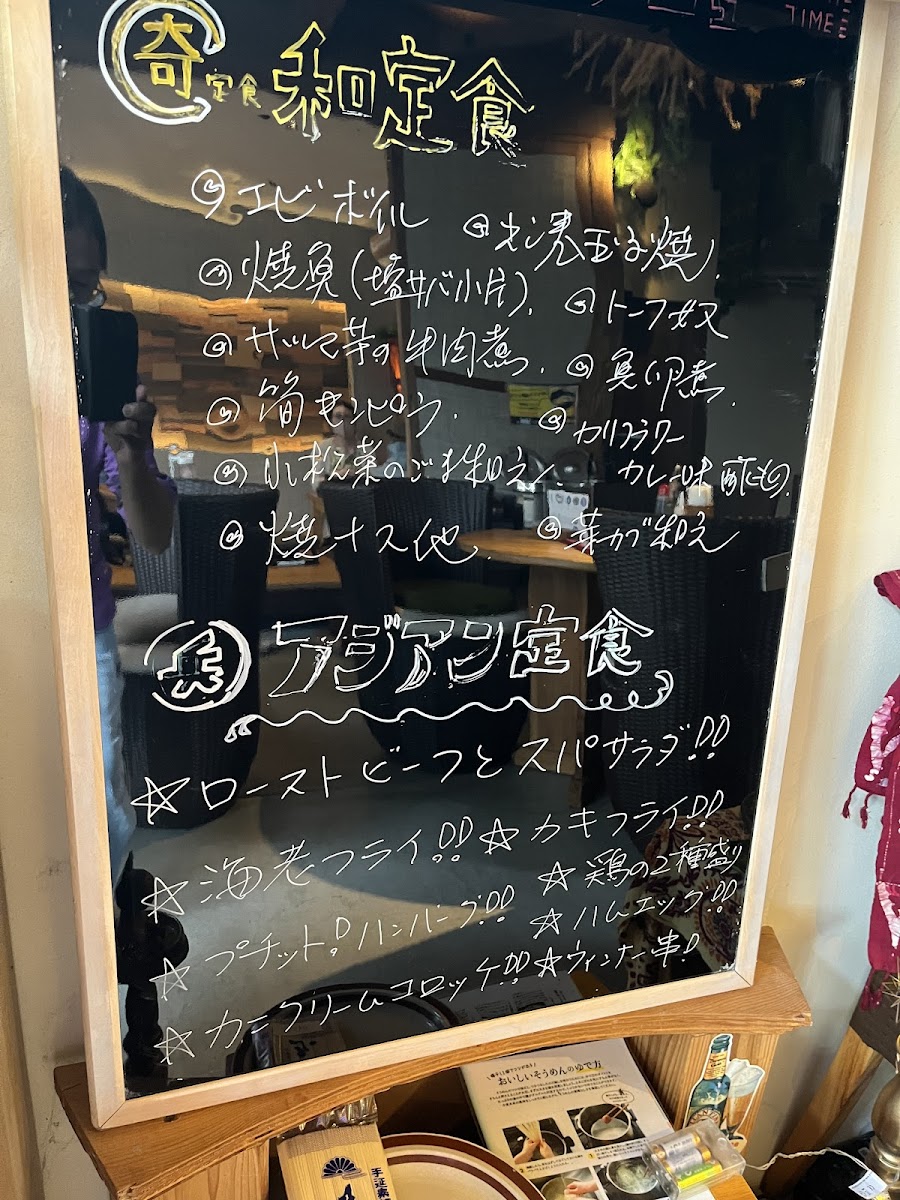 TIME
奇 定食 和定食
エビボイル
焼魚(塩サバ小片).
サツマ芋の牛肉煮.
筍キンピラ.
小松菜のごま和え
焼ナス他
玉子焼.
トーフ奴
魚卵煮.
カリフラワー
カレー味酢もの.
菜カブ和え
アジアン定食
☆ローストビーフとスパサラダ!!
☆海老フライ!! ☆カキフライ!!
☆鶏の2種盛り
☆プチット!ハンバーグ!! ☆ハムエッグ!!
☆カニクリームコロッケ!! ☆ウィンナー串!
おいしいそうめんのゆで方
手延素